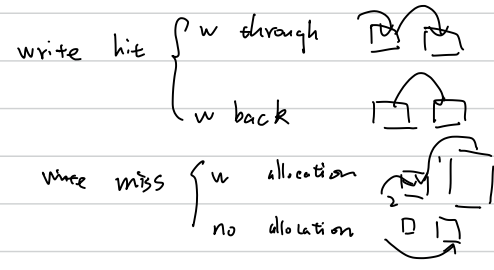 write hit { w through
w back
write miss { w allocation
2
no allocation